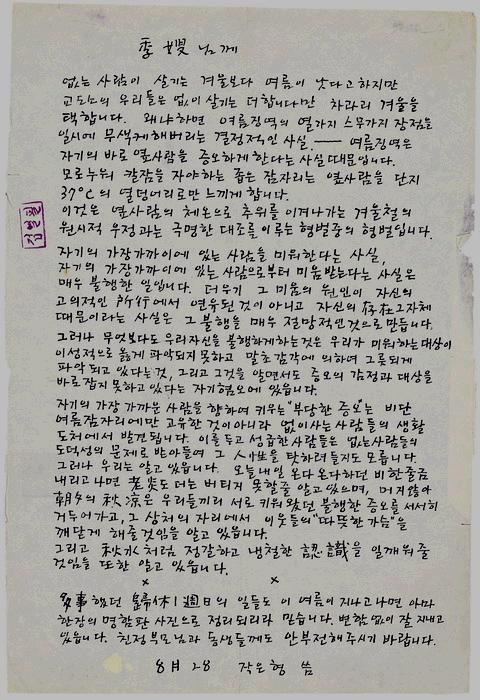 季嫂님께
없는 사람이 살기는 겨울보다 여름이 낫다고하지만
교도소의 우리들은 없이 살기는 더합니다만 차라리 겨울을
택합니다. 왜냐하면 여름징역의 열가지 스무가지 장점을
일시에 무색케해버리는 결정적인 사실. ── 여름징역은
자기의 바로 옆사람을 증오하게한다는 사실때문입니다.
모로누워 칼잠을 자야하는 좁은 잠자리는 옆사람을 단지
37°C의 열덩어리로만 느끼게 합니다.
이것은 옆사람의 체온으로 추위를 이겨나가는 겨울철의
원시적 우정과는 극명한 대조를 이루는 형벌중의 형벌입니다.
자기의 가장가까이에 있는 사람을 미워한다는 사실,
자기의 가장가까이에 있는 사람으로부터 미움받는다는 사실은
매우 불행한 일입니다. 더우기 그 미움의 원인이 자신의
고의적인 所行에서 연유된것이 아니고 자신의 存在 그자체
때문이라는 사실은 그 불행을 매우 절망적인것으로 만듭니다.
그러나 무엇보다도 우리자신을 불행하게하는것은 우리가 미워하는대상이
이성적으로 옳게 파악되지못하고 말초감각에 의하여 그릇되게
파악되고있다는것, 그리고 그것을 알면서도 증오의 감정과 대상을
바로잡지못하고있다는 자기혐오에 있읍니다.
자기의 가장 가까운 사람을 향하여 키우는 "부당한 증오"는 비단
여름잠자리에만 고유한것이아니라 없이사는사람들의 생활
도처에서 발견됩니다. 이를두고 성급한사람들은 없는사람들의
도덕성의 문제로 받아들여 그 人性을 탓하려들지도 모릅니다.
그러나 우리는 알고있읍니다. 오늘내일 온다온다하던 비한줄금
내리고나면 老炎도 더는 버티지 못할줄 알고있으며, 머지않아
朝夕의 秋凉은 우리들끼리 서로 키워왔던 불행한 증오를 서서히
거두어가고, 그 상처의 자리에서 이웃들의 "따뜻한 가슴"을
깨닫게 해줄것임을 알고 있읍니다.
그리고 秋水처럼 정갈하고 냉철한 認識을 일깨워줄
것임을 또한 알고 있읍니다.
× ×
多事했던 歸休 1週日의 일들도 이 여름이 지나고나면 아마
한장의 명함판 사진으로 정리되리라 믿습니다. 변함없이 잘지내고
있읍니다. 친정부모님과 동생들께도 안부전해주시기 바랍니다.
8月 28 작은형 씀